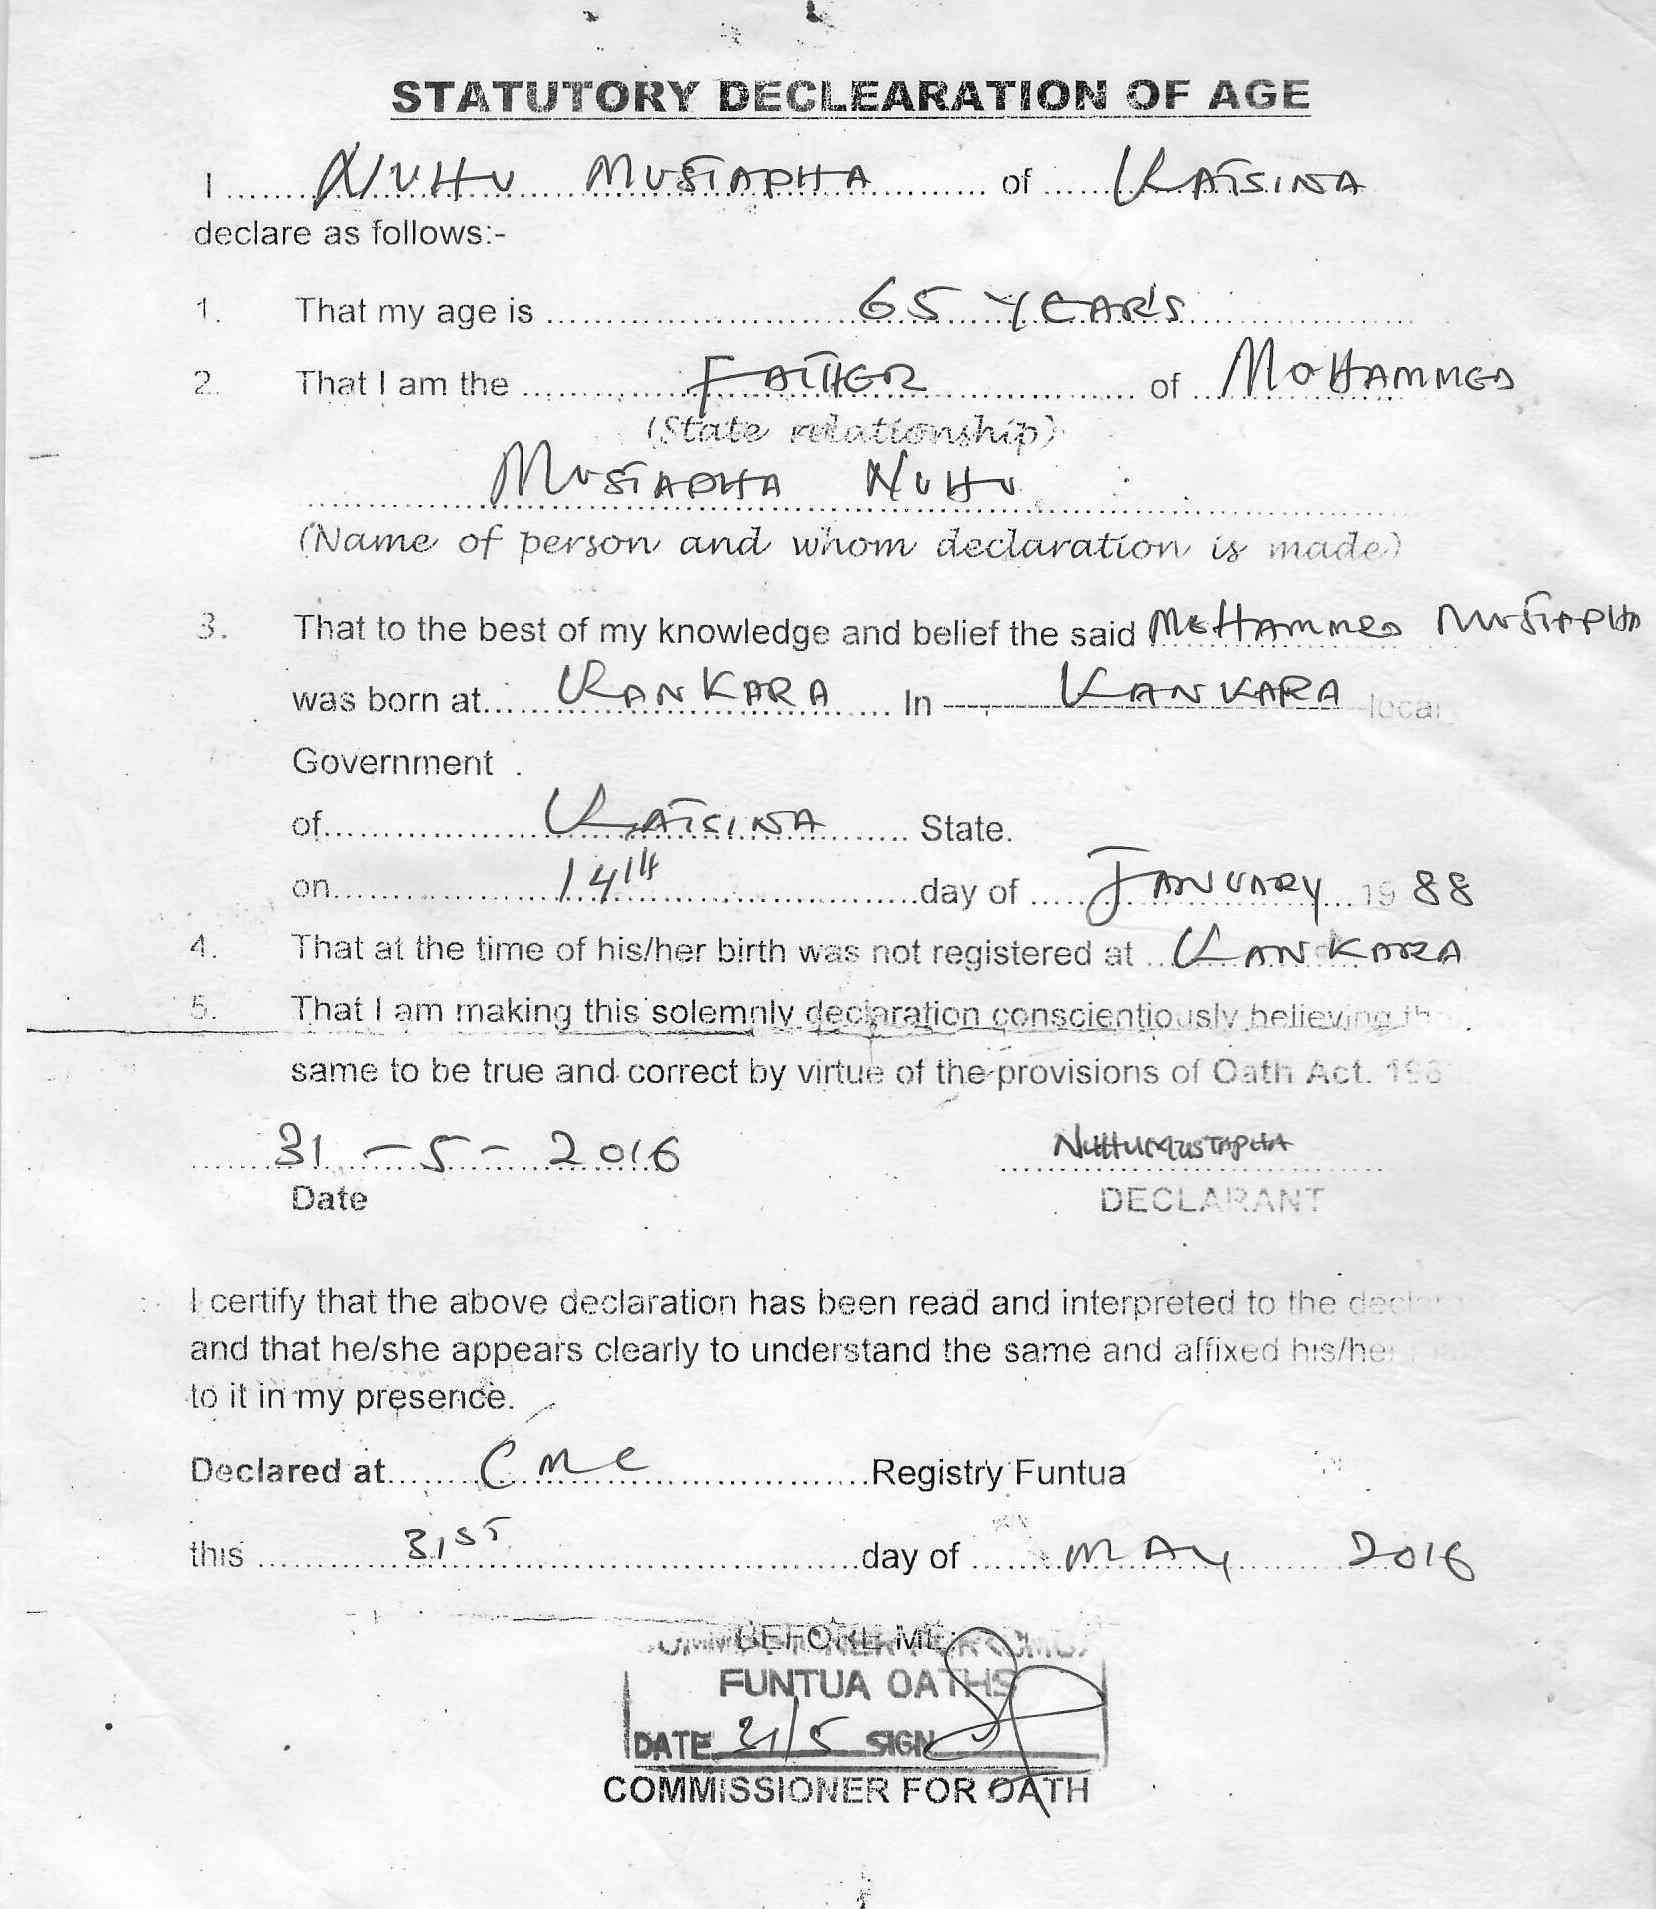 STATUTORY DECLEARATION OF AGE
I ....... NUHU MUSTAPHA ....... of ....... KATSINA
declare as follows:-
1. That my age is ....... 65 YEARS .......
2. That I am the ....... FATHER ....... of ....... MOHAMMED
(State relationship)
....... MUSTAPHA NUHU .......
(Name of person and whom declaration is made)
3. That to the best of my knowledge and belief the said MOHAMMED MUSTAPHA
was born at....... KANKARA ....... In ------- KANKARA ------- local
Government .
of....... KATSINA ....... State.
on....... 14TH .......day of ....... JANUARY ....... 1988
4. That at the time of his/her birth was not registered at ....... KANKARA
5. That I am making this solemnly declaration conscientiously believing
same to be true and correct by virtue of the provisions of Oath Act.
31 - 5 - 2016 NUHU MUSTAPHA
Date DECLARANT
I certify that the above declaration has been read and interpreted to the
and that he/she appears clearly to understand the same and affixed his/her
to it in my presence.
Declared at....... CMC .......Registry Funtua
this ....... 31ST .......day of ....... MAY 2016
BEFORE ME:
FUNTUA OATHS
DATE 31/5 SIGN
COMMISSIONER FOR OATH